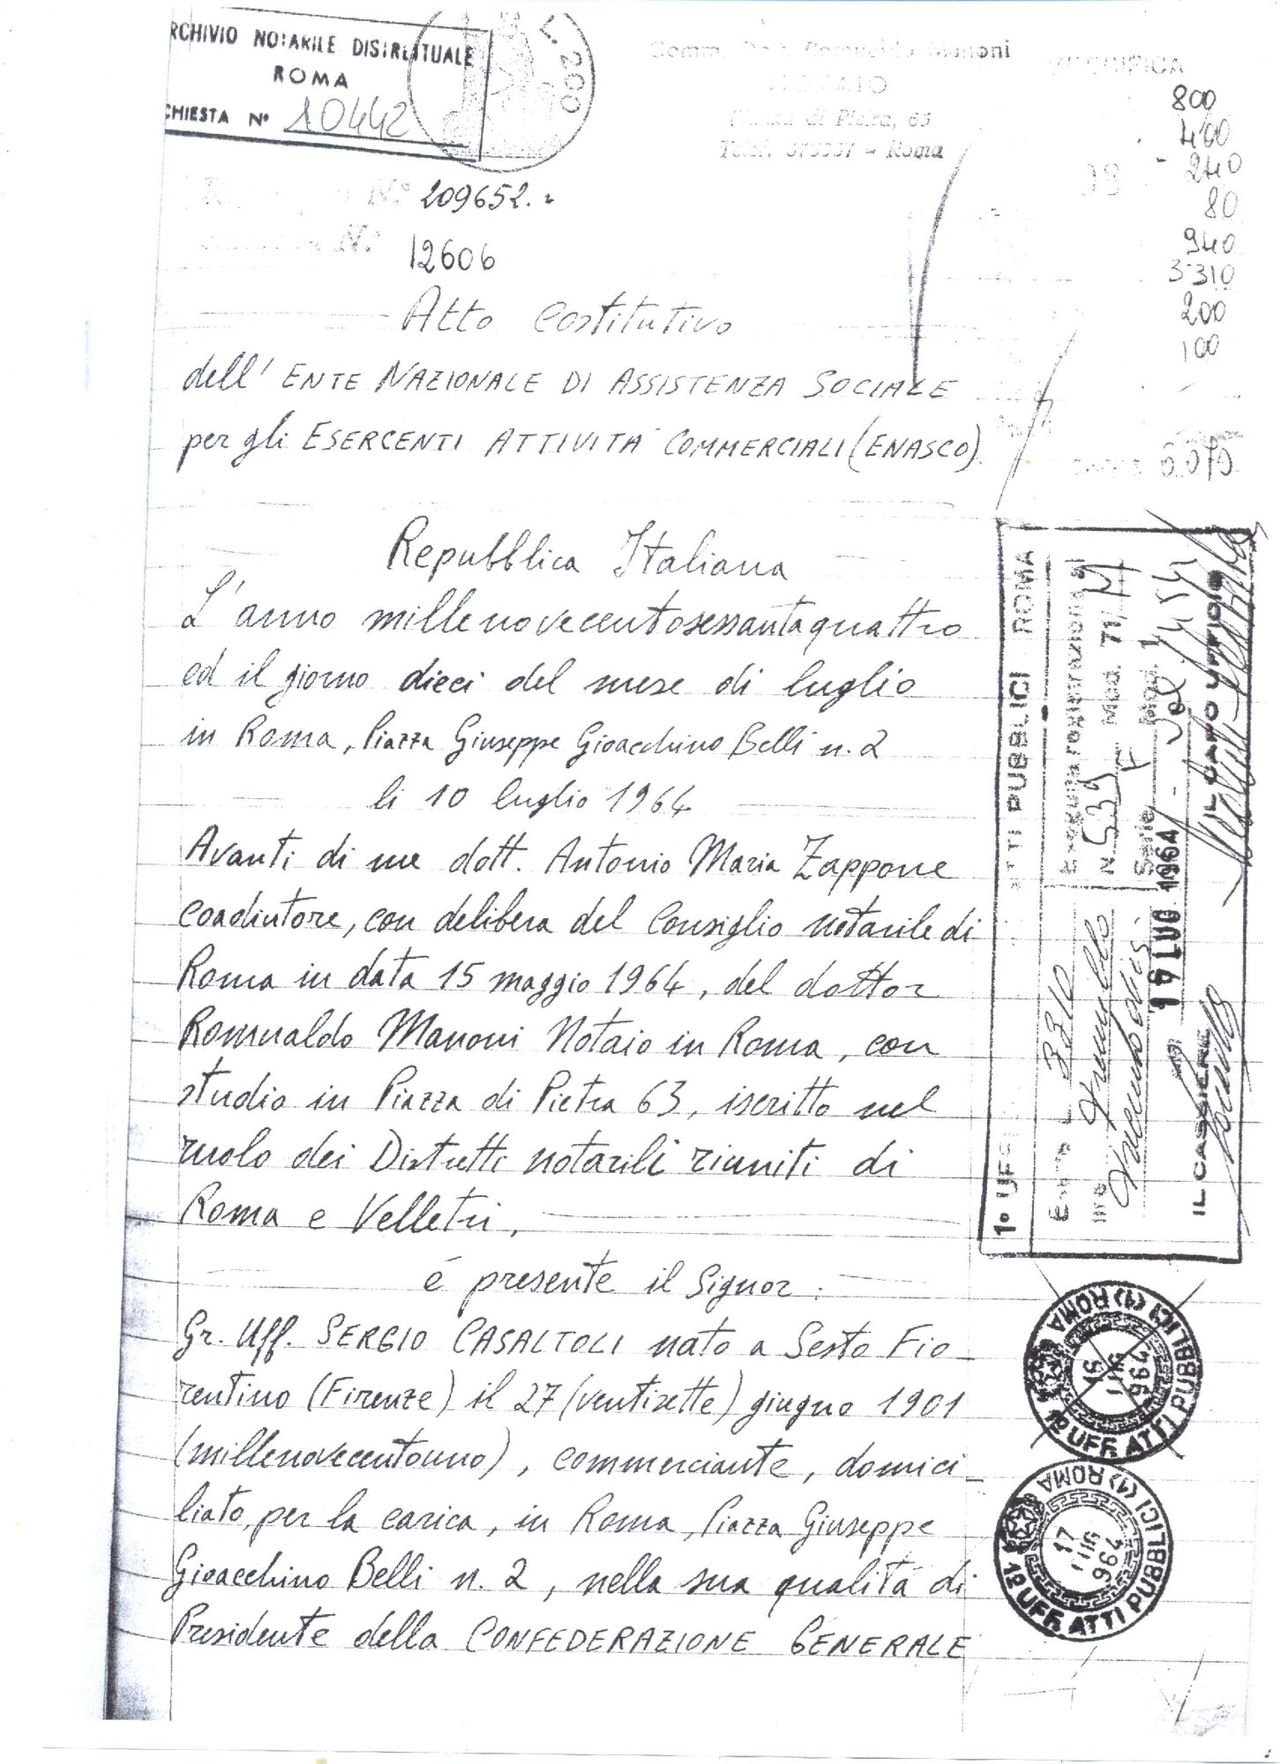 ARCHIVIO NOTARILE DISTRETTUALE
ROMA
CHIESTA N° 10442
L. 200
Manoni
NOTAIO
Piazza di Pietra, 63
Roma
800
400
240
80
940
3310
200
100
N° 209652.
N° 12606
Atto Costitutivo
dell' ENTE NAZIONALE DI ASSISTENZA SOCIALE
per gli ESERCENTI ATTIVITA' COMMERCIALI (ENASCO).
Repubblica Italiana
L'anno millenovecentosessantaquattro
ed il giorno dieci del mese di luglio
in Roma, Piazza Giuseppe Gioacchino Belli n. 2
li 10 luglio 1964
Avanti di me dott. Antonio Maria Zappone
coadiutore, con delibera del Consiglio notarile di
Roma in data 15 maggio 1964, del dottor
Romualdo Manoni Notaio in Roma, con
studio in Piazza di Pietra 63, iscritto nel
ruolo dei Distretti notarili riuniti di
Roma e Velletri,
é presente il Signor:
Gr. Uff. SERGIO CASALTOLI nato a Sesto Fio_
rentino (Firenze) il 27 (ventisette) giugno 1901
(millenovecentouno), commerciante, domici_
liato, per la carica, in Roma, Piazza Giuseppe
Gioacchino Belli n. 2, nella sua qualità di
Presidente della CONFEDERAZIONE GENERALE
1° UFF. ATTI PUBBLICI ROMA
Eseguita registrazione al
N. 539 Mod. 71/M
Serie F Mod.
Esatte L. 3310
lire
17 LUG 1964
IL CASSIERE
IL CAPO UFFICIO
1º UFF. ATTI PUBBLICI (1) ROMA
16
LUG
964
1º UFF. ATTI PUBBLICI (1) ROMA
17
LUG
964